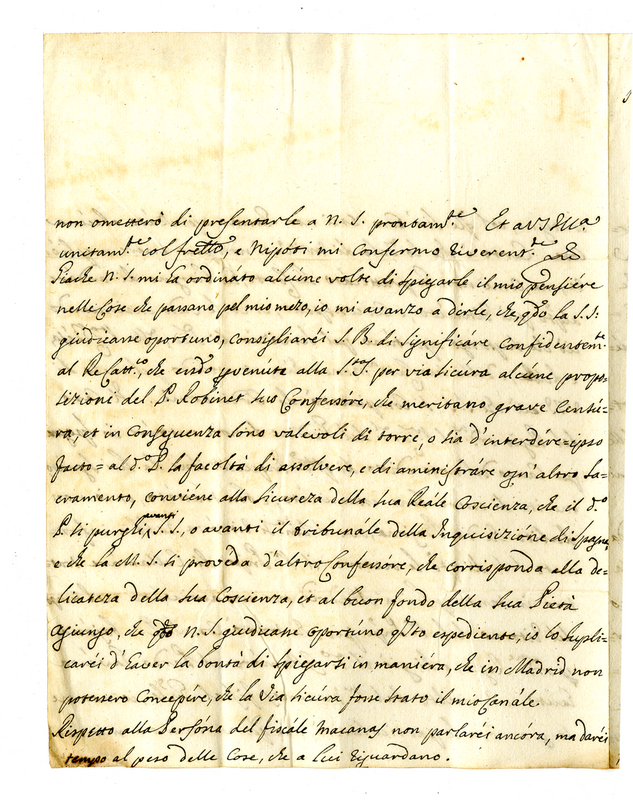 non ometterò di presentarle a N. S. prontam.te Et a VS Ill.a
unitam.te col frello, e Nipóti mi Confermo riverent.te
Giache N. S. mi ha ordinato alcúne volte di spiegarle il mio pensiére
nelle Cose che passano pel mio mezo, io mi avanzo a dirle, che, qdo la S. S.
giudicasse oportuno, consigliaréi S. B. di significáre Confidentem.te
al Re Catt.co, che essdo pvenúte alla S.tà S. per via sicura alcúne propo=
sizioni del P. Robinet suo Confessóre, che meritano grave Censú=
ra, et in Conseguenza sono valevoli di torre, o sia d'interdire=ipso
facto= al d.o P. la facoltà di assolvere, e di aministráre ogn'altro Sa=
cramento, conviéne alla sicureza della sua Reále Coscienza, che il d.o
P. si purghi avanti S. S., o avanti il tribunále della Inquisizióne di Spagna,
e che la M. S. si proveda d'altro Confessóre, che corrisponda alla de=
licateza della sua Coscienza, et al buon fondo della sua Pietà
Agiungo, che qdo N. S. giudicasse oportúno qsto expediente, io lo supli=
caréi d'haver la bontà di spiegarsi in maniéra, che in Madrid non
potessero Concepíre, che la via sicúra fosse stato il mio Canále
Rispetto alla Persóna del fiscále Macanas non parlaréi ancóra, ma daréi
tempo al peso delle Cose, che a Lui riguardano.